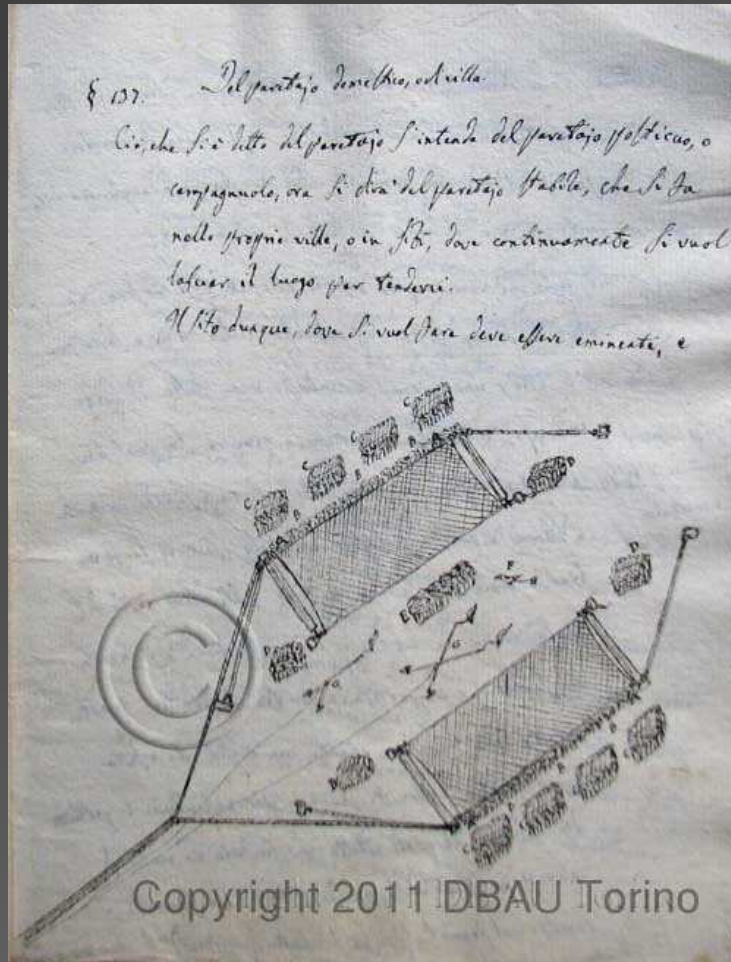 § 137. Del paretajo domestico, od villa.
Ciò, che si è detto del paretajo s'intende del paretajo posticcio, o
campagnuolo, ora si dirà del paretajo stabile, che si fa
nelle proprie ville, o in siti, dove continuamente si vuol
lasciar il luogo per tendervi.
Il sito dunque, dove si vuol fare deve essere eminente, e
C C C C
B B B A
A D
D E F D
G G
B A
D B B
A C C C C
©
Copyright 2011 DBAU Torino